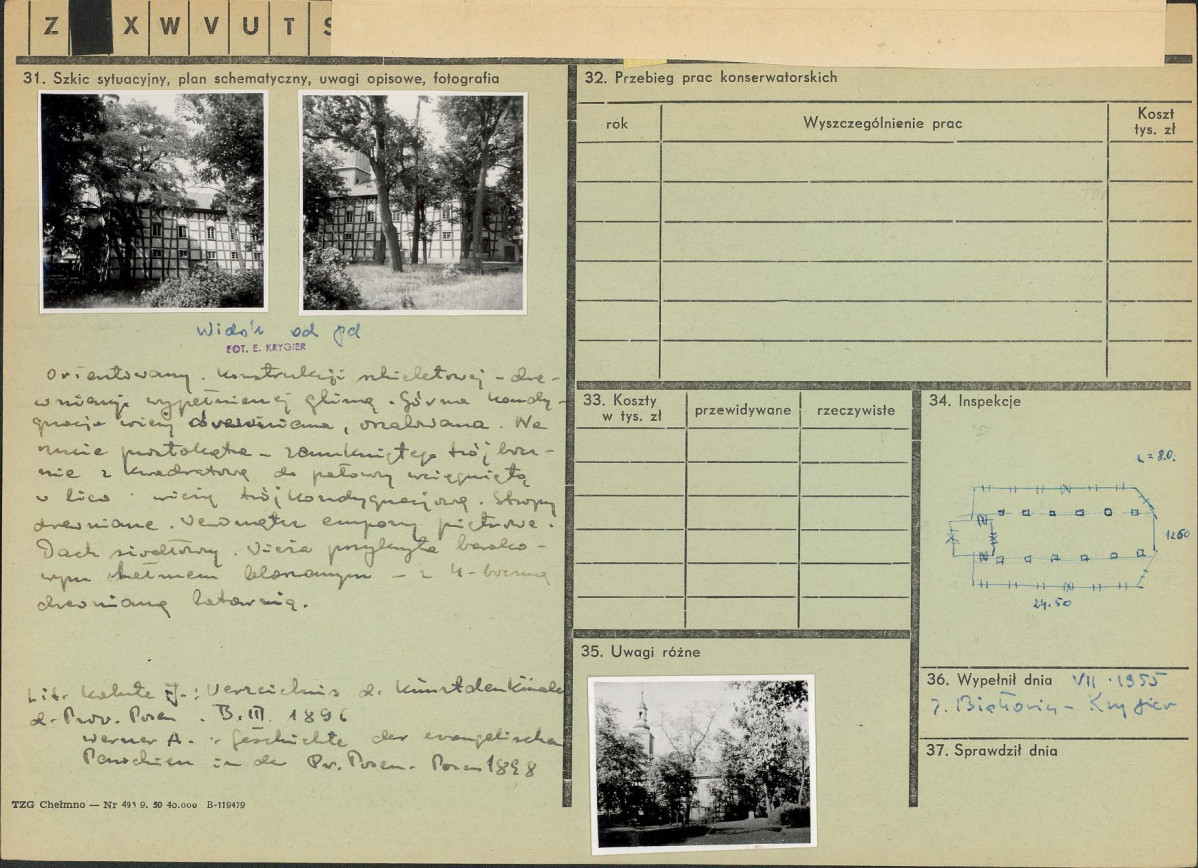 Z X W V U T S
31. Szkic sytuacyjny, plan schematyczny, uwagi opisowe, fotografia
Widok od pd
FOT. E. KRYGIER
Orientowany. Konstrukcji szkieletowej - dre-
wnianej wypełnionej gliną. Górna kondy-
gnacja wieży drewniana, oszalowana. Na
rzucie prostokąta - zamkniętego trójbocz-
nie z kwadratową do połowy wciągniętą
w lico wieżą trójkondygnacjową. Stropy
drewniane. Wewnątrz empory piętrowe.
Dach siodłowy. Wieża przykryta baroko-
wym hełmem blaszanym - z 4-boczną
drewnianą latarnią.
Lit. Kohte J.: Verzeichnis d. Kunstdenkmäle
d. Prov. Posen. B. III. 1896
Werner A.: Geschichte der evangelischen
Parochien in der Pr. Posen. Posen 1898
TZG Chełmno — Nr 495 9. 50 40.000 B-119479
32. Przebieg prac konserwatorskich
rok Wyszczególnienie prac Koszt
tys. zł
33. Koszty
w tys. zł przewidywane rzeczywiste
34. Inspekcje
L = 8.0.
1260
24.50
35. Uwagi różne
36. Wypełnił dnia VII. 1955
Krygier
37. Sprawdził dnia